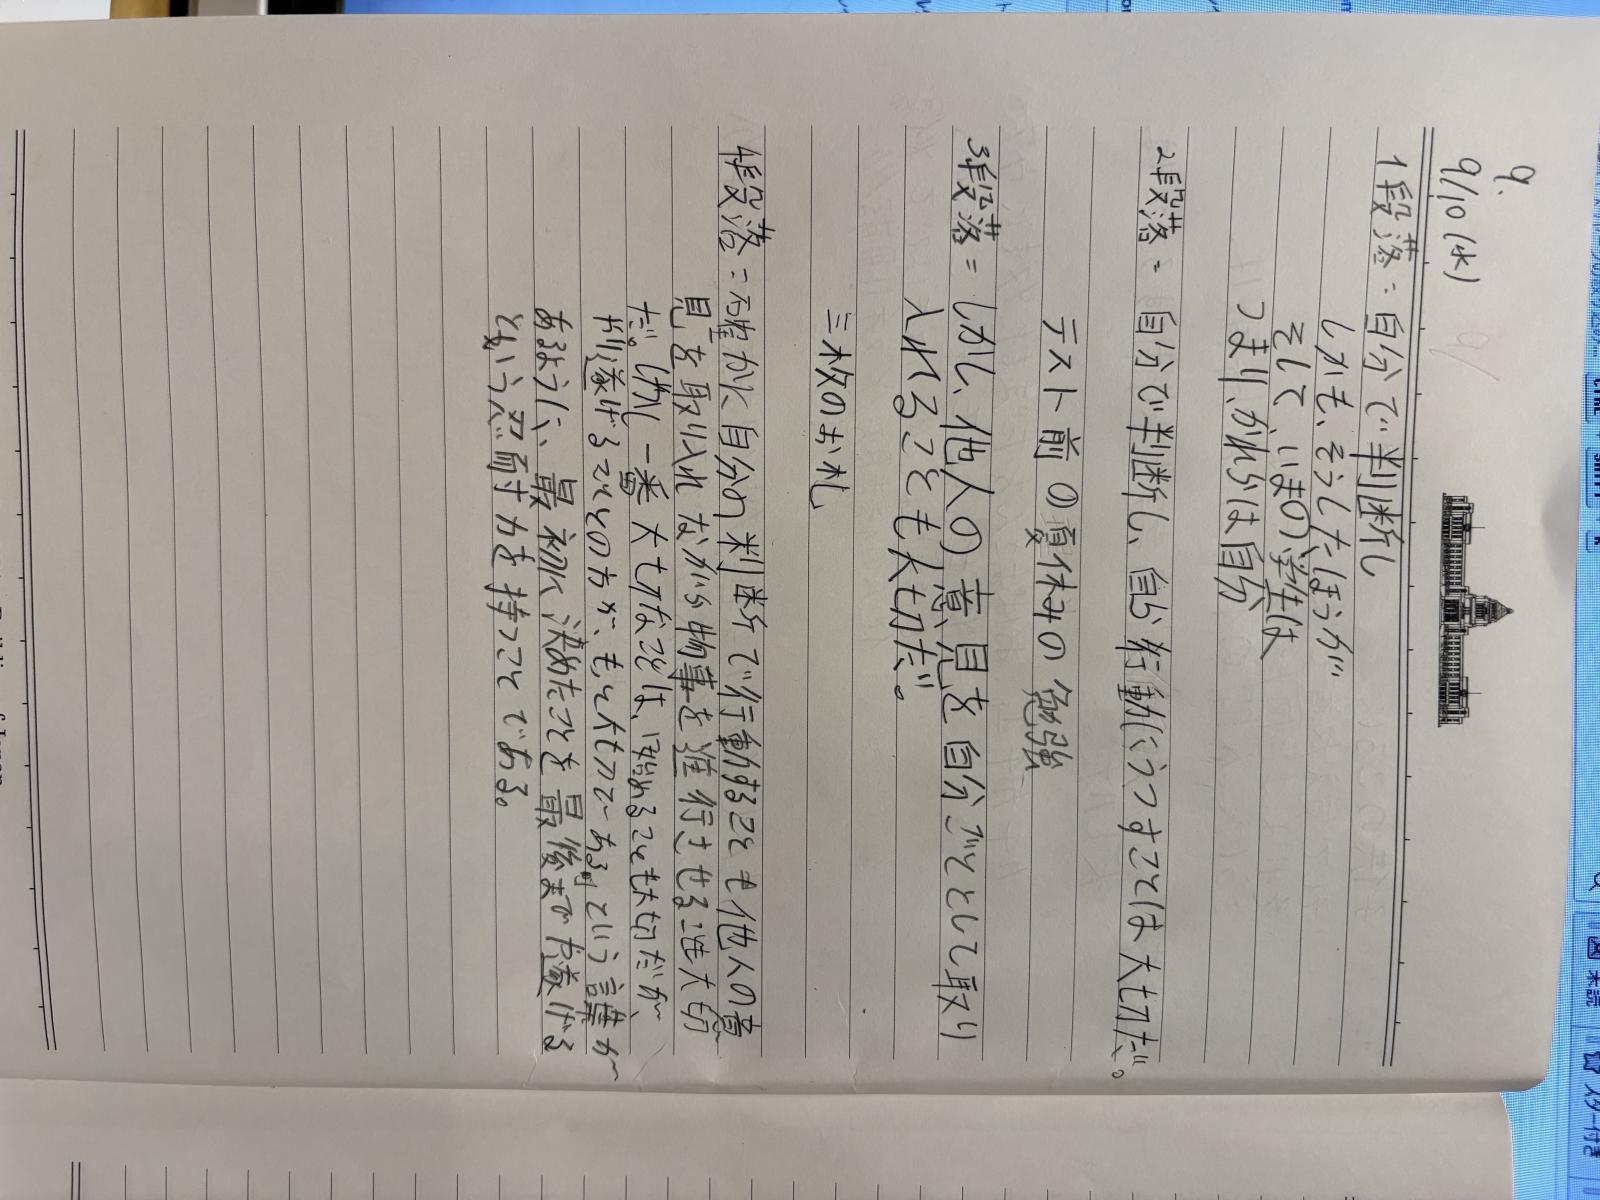 9.
9/10 (水)
1段落=自分で判断し
しかも、そうしたほうが
そして、いまの学生は
つまり、かれらは自分
2段落=自分で判断し、自ら行動にうつすことは大切だ。
テスト前の夏休みの勉強
3段落=しかし、他人の意見を自分ごととして取り
入れることも大切だ。
三枚のお札
4段落=確かに自分の判断で行動することも他人の意
見を取り入れながら物事を進行させることも大切
だ。しかし一番大切なことは、「始めることも大切だが、
やり遂げることの方が、もっと大切である」という言葉が
あるように、最初に決めたことを最後までやり遂げる
という忍耐力を持つことである。
未読
スター付き